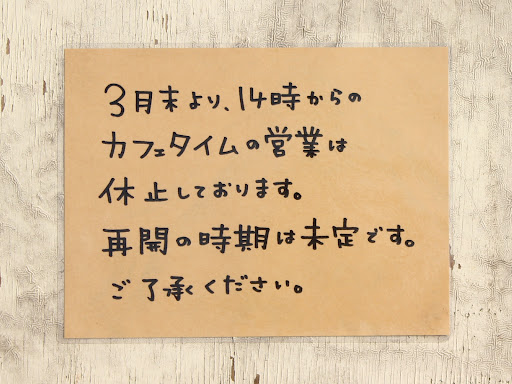 3月末より、14時からの
カフェタイムの営業は
休止しております。
再開の時期は未定です。
ご了承ください。